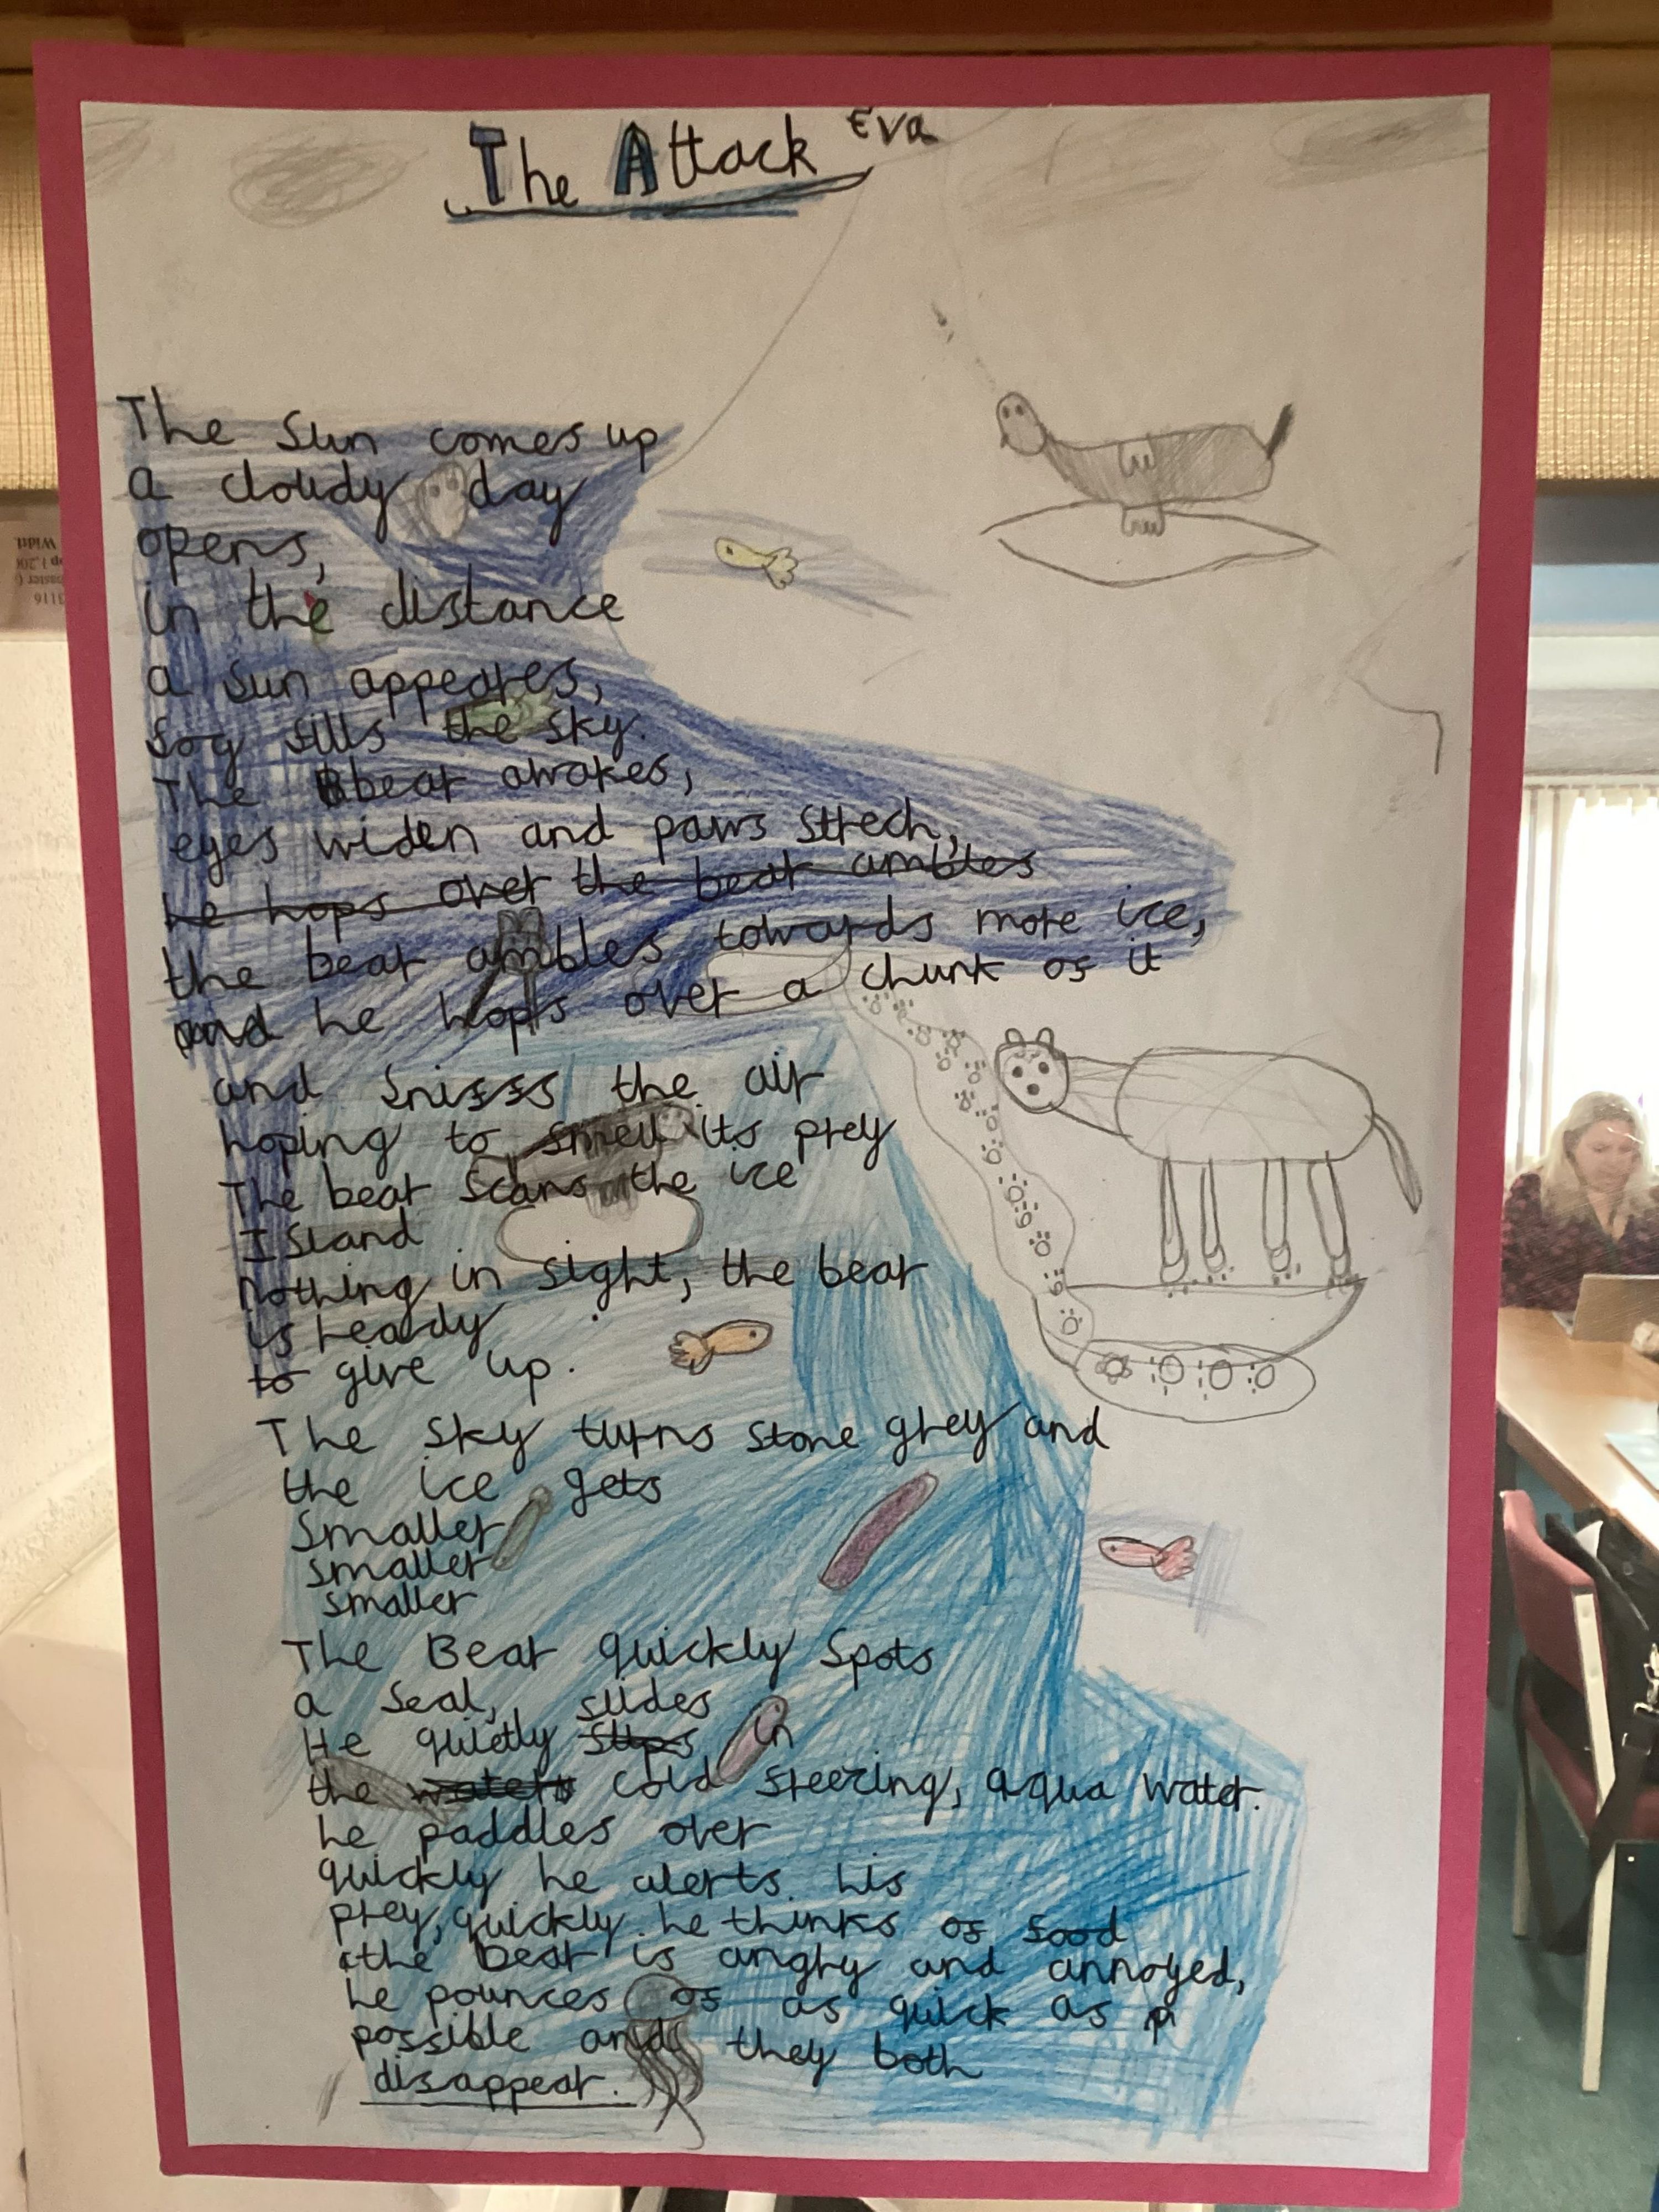 The Attack Eva
The Sun comes up
a cloudy day
opens,
in the distance
a sun appeares,
fog fills the sky.
The bear awakes,
eyes widen and paws strech,
he hops over the bear ambles
the bear ambles towards more ice,
and he hops over a chunk of it
and sniffs the air
hoping to smell its prey
The bear scans the ice
I Sland
Nothing in sight, the bear
is ready
to give up.
The sky turns stone grey and
the ice gets
Smaller
smaller
smaller
The Bear quickly Spots
a Seal, slides
He quietly slips in
the waters cold freezing, aqua water.
he paddles over
quickly he alerts his
prey, quickly he thinks of food
the bear is angry and annoyed,
he pounces of as quick as p
possible and they both
disappear.